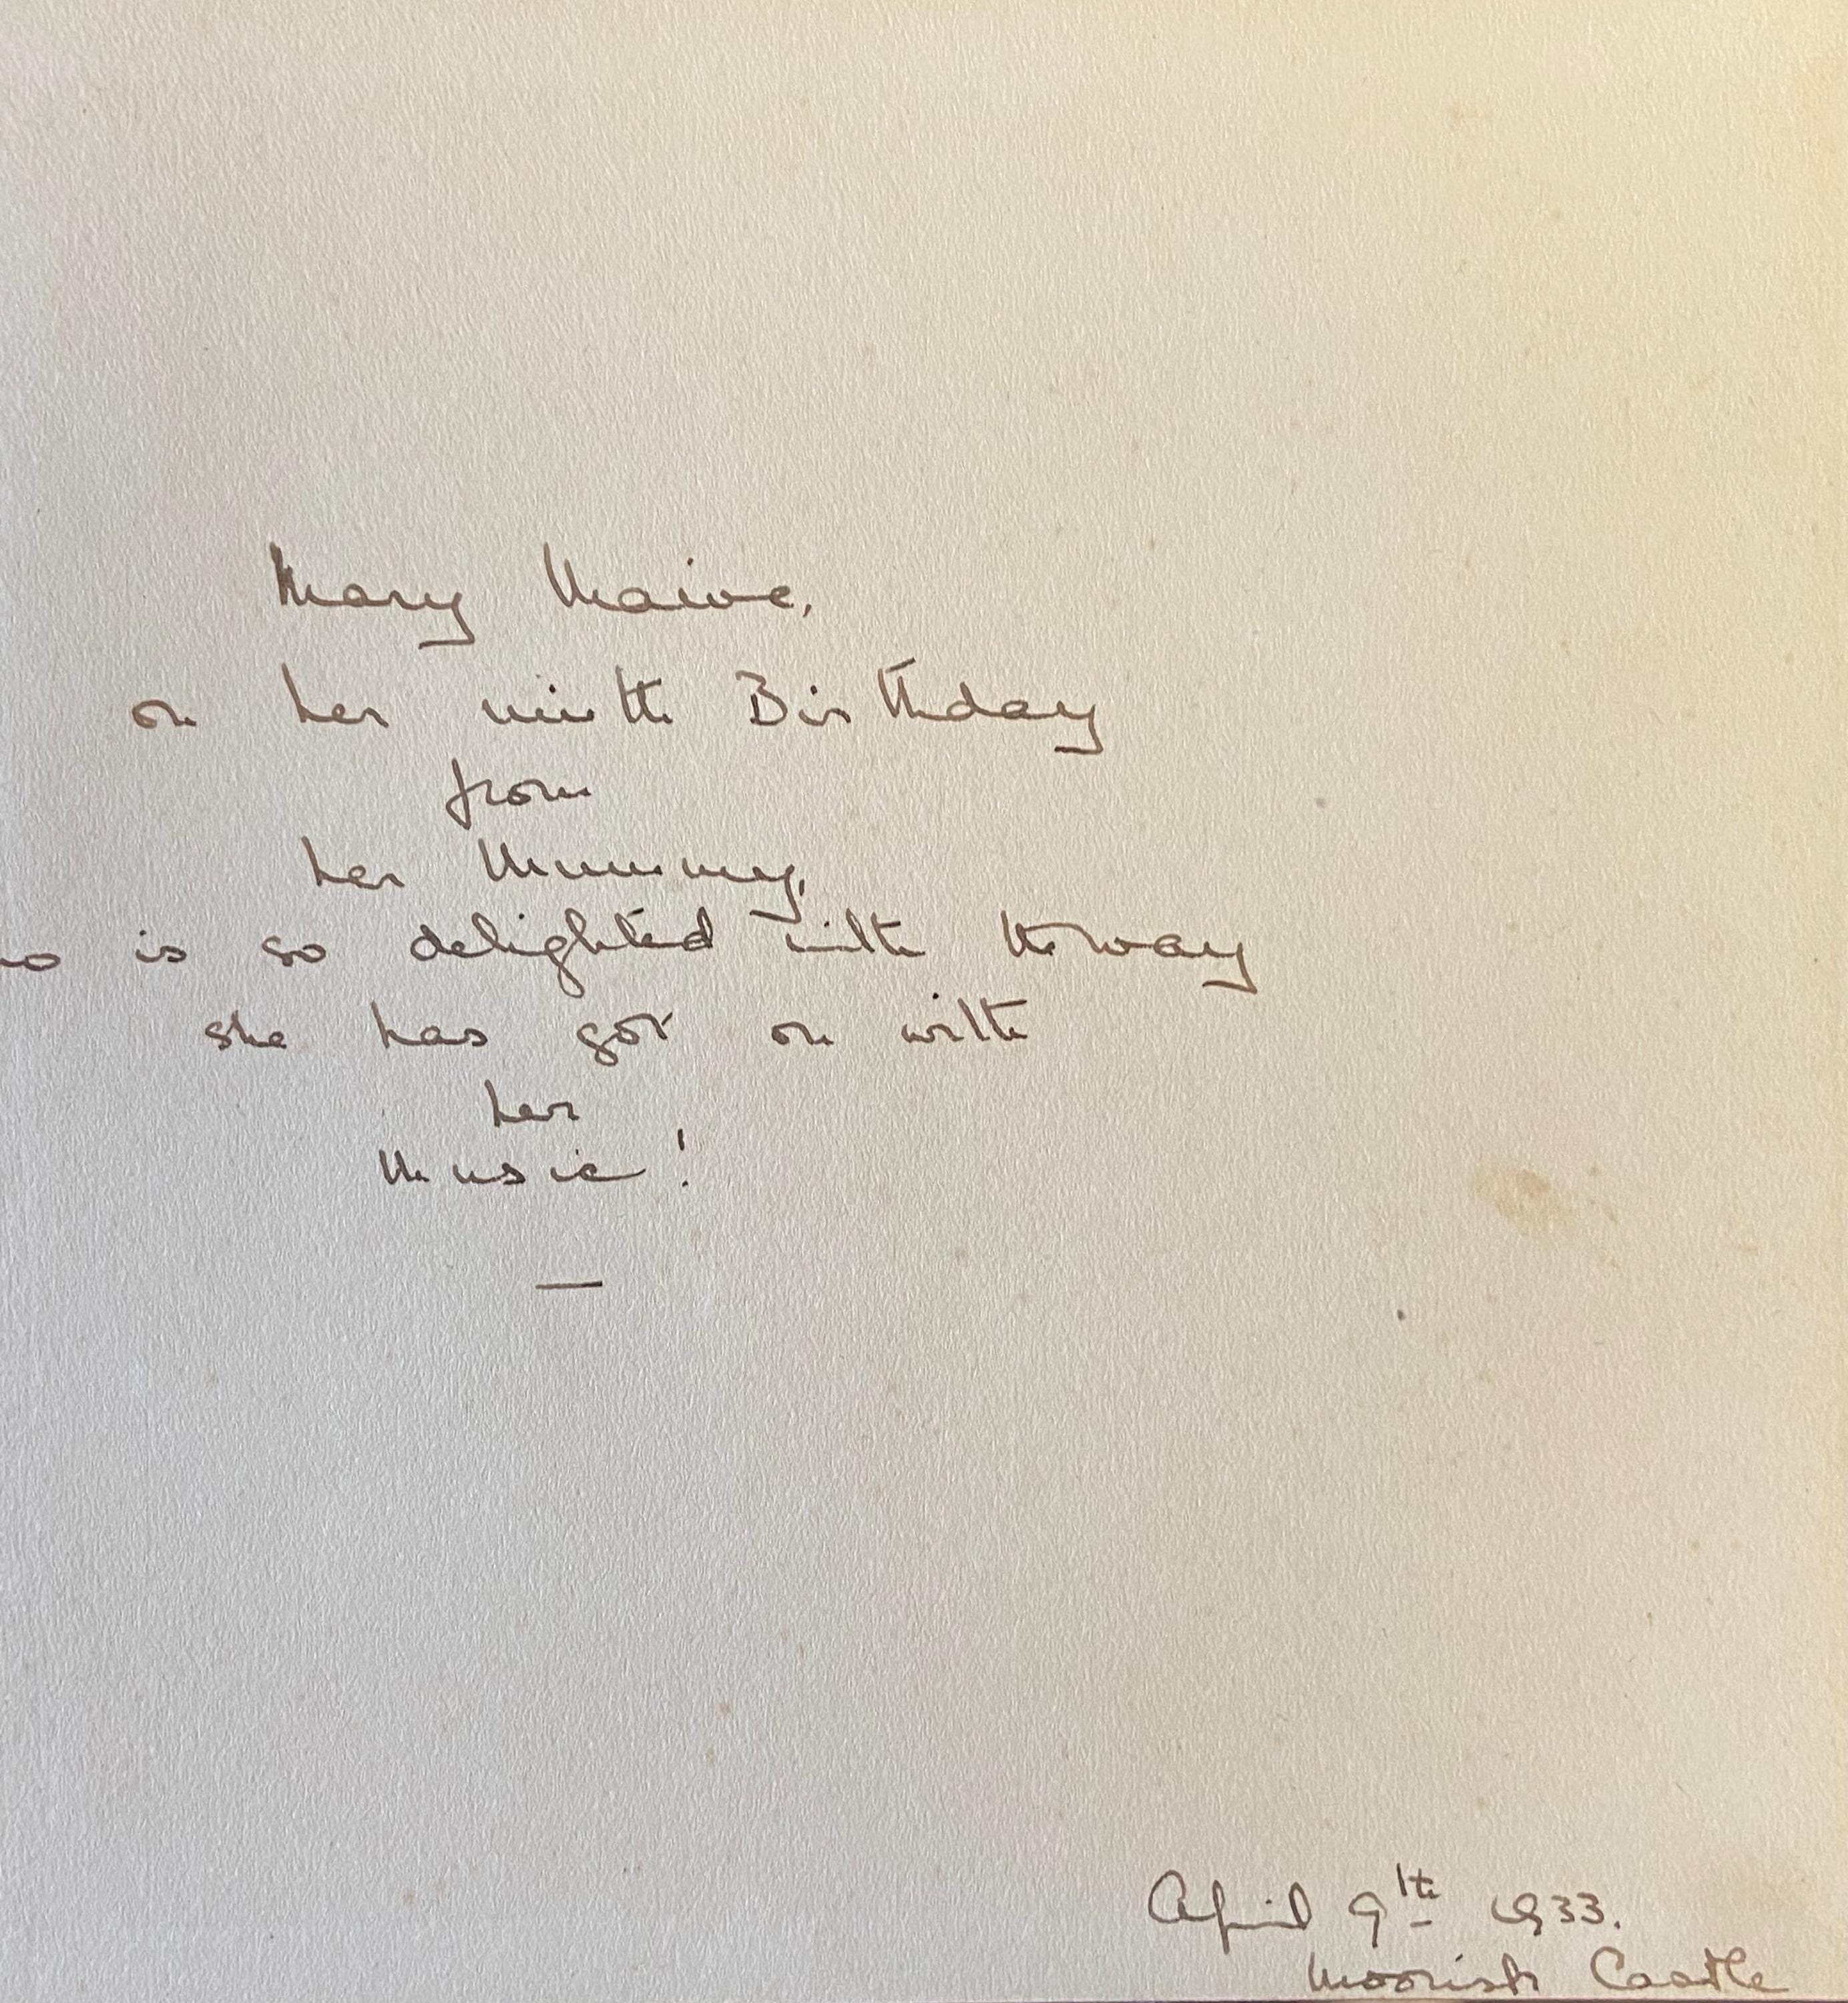 Mary Maive,
on her ninth Birthday
from
her Mummy,
is so delighted with the way
she has got on with
her
Music!
—
April 9th 1933.
Moorish Castle